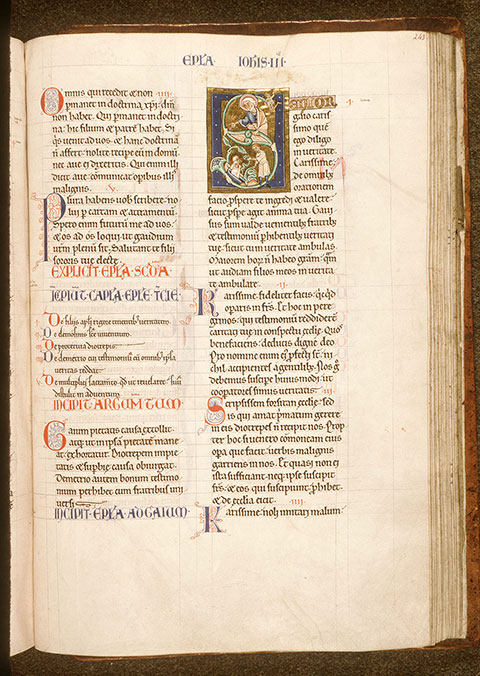 EPLA IOHIS III
243
Omnis qui recedit & non IIII
pmanet in doctrina xpi: dm̄
non habet. Qui pmanet in doctri
na: hic filium & patrē habet. Si
qs uenit ad uos & hanc doctrinā
n̄ affert: nolite recipe eum in domū
nec aue ei dixeritis. Qui enim illi
dicit aue: comunicat opibus illi
malignis. V
Plura habens uob scribere: no
lui p cartam & atramentū.
Spero enim futurū me ad uos:
& os ad os loqui: ut gaudium
urm̄ plenū sit. Salutant te filii
sororis tue electe.
EXPLICIT EPLA SCDA
INCIPIUT CAPLA EPLE TCIE
De filiis apli rigore uiuentib; ueritatem.
De demetrio cui testimoniū ex omnib; ipsa
ueritas reddat.
INCIPIT ARGUMTUM
Gaium pietatis causa extollit.
atq; ut in ipsa pietate mane
at exhortatur. Diotrepem impie
tatis & supbie causa obiurgat.
Demetrio autem bonum testimo
nium perhibet cum fratribus uni
uersis
INCIPIT EPLA AD GAIUM
SENIOR I
gaio caris
simo que
ego diligo
in ueritate.
Carissime:
de omnib;
orationem
facio pspere te ingredi & ualere
sicut pspe agit anima tua. Gaui
sus sum ualde uenientib; fratrib;
& testimoniū phibentib; ueritati
tue: sicut tu in ueritate ambulas.
Maiorem horū n̄ habeo gratiam: qm
ut audiam filios meos in uerita
te ambulare. II
Karissime: fideliter facis: qcqd
oparis in frs. & hoc in pere
grinos: qui testimoniū reddider̄
caritati tue in conspectu ecclie. Quos
benefaciens: deduces digne deo.
Pro nomine enim ei pfecti st̄: ni
chil accipientes a gentilib;. Nos g
debemus suscipe hui modi: ut
cooperatores simus ueritatis. III
Scripsissem forsitan ecclie: sed
is qui amat pmatum gerere
in eis diotrepes n̄ recipit nos. Prop
ter hoc si uenero cōmoneam eius
opa que facit: uerbis malignis
garriens in nos. Et quasi non ei
ista sufficiant: neq; ipse suscipit
frs. & eos qui suscipiunt: phibet.
& de ecclia eicit. IIII
Karissime: noli imitari malum